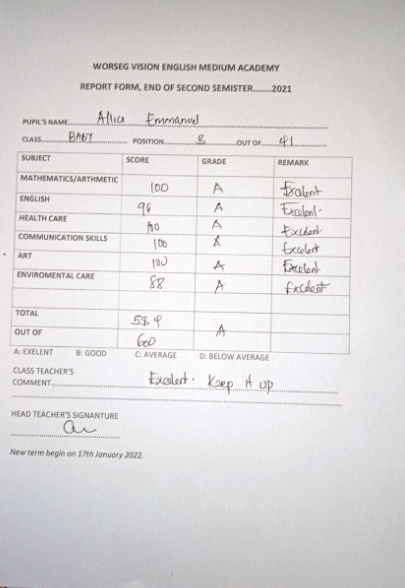 WORSEG VISION ENGLISH MEDIUM ACADEMY
REPORT FORM, END OF SECOND SEMISTER.........2021
PUPIL'S NAME Allice Emmanuel
CLASS BABY POSITION 8 OUT OF 41
SUBJECT SCORE GRADE REMARK
MATHEMATICS/ARTHMETIC 100 A Exalent
ENGLISH 96 A Excelent
HEALTH CARE A Excelent
COMMUNICATION SKILLS 100 A Excelent
ART 100 A Excelent
ENVIROMENTAL CARE 88 A Excelent
TOTAL
OUT OF 600 A
A: EXELENT B: GOOD C: AVERAGE D: BELOW AVERAGE
CLASS TEACHER'S
COMMENT Excelent. Keep it up
HEAD TEACHER'S SIGNANTURE
New term begin on 17th January 2022.